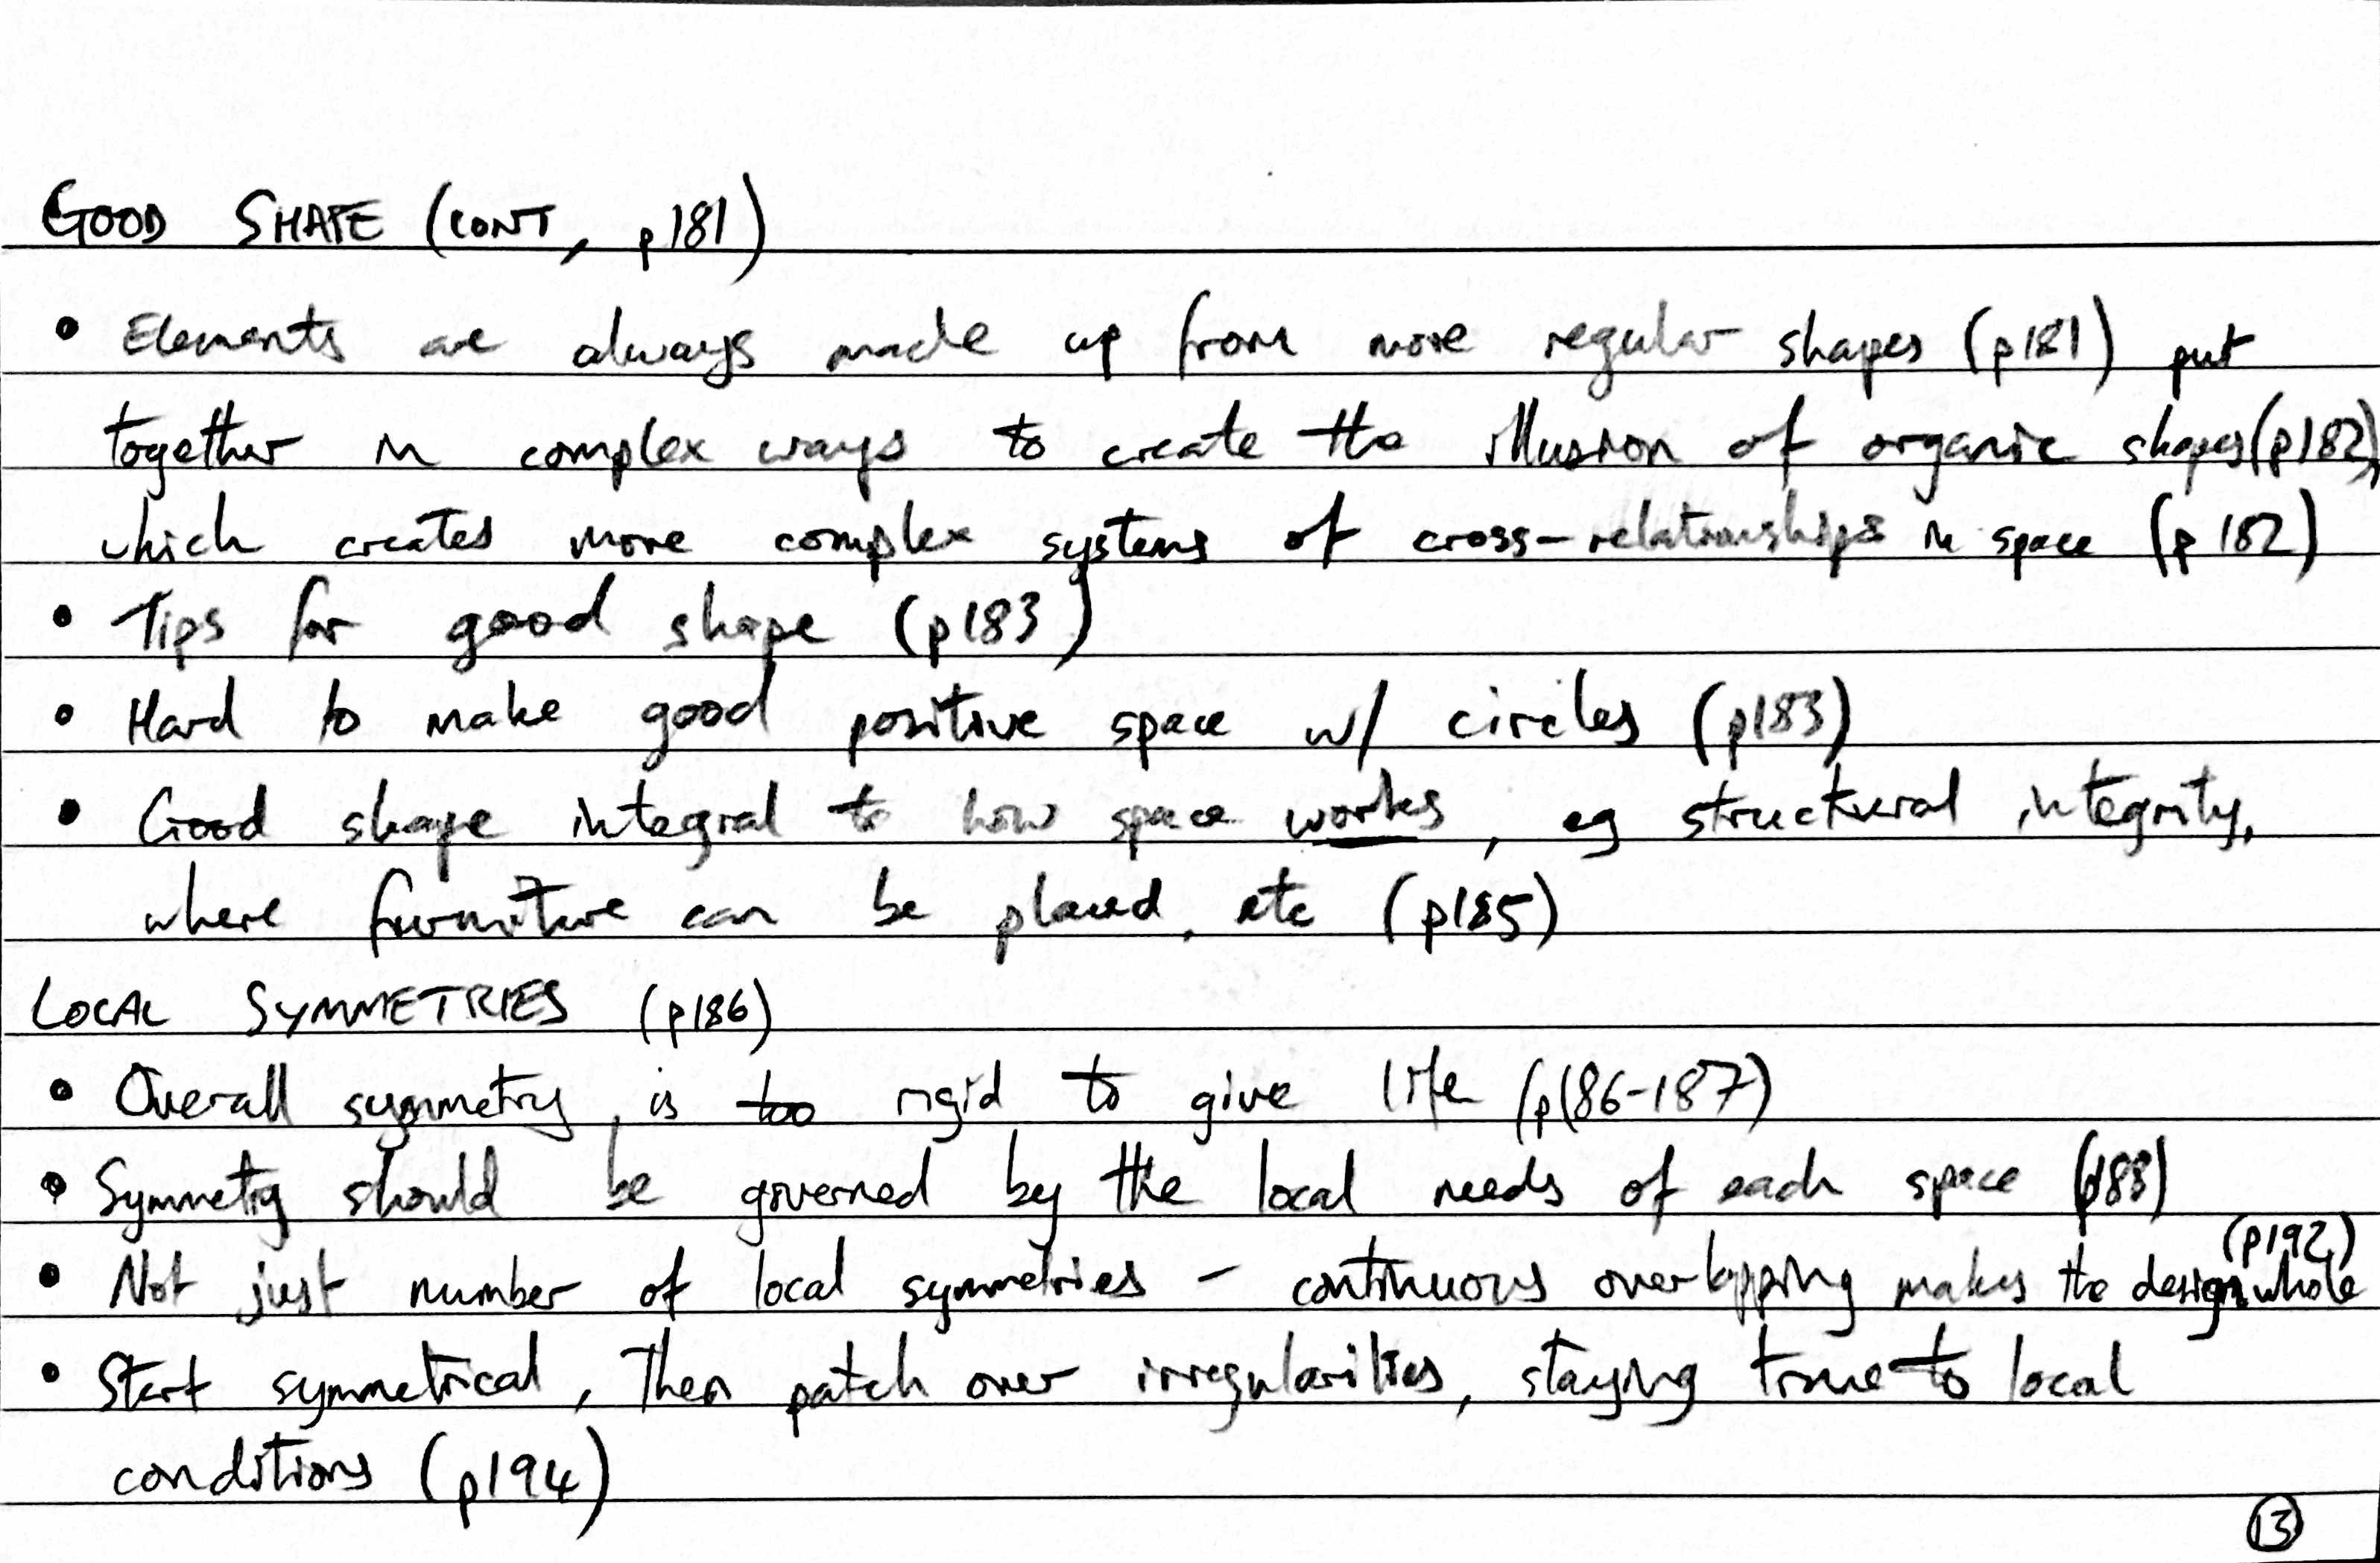 GOOD SHAPE (CONT, p181)
• Elements are always made up from more regular shapes (p181) put
together in complex ways to create the illusion of organic shapes (p182),
which creates more complex systems of cross-relationships in space (p182)
• Tips for good shape (p183)
• Hard to make good positive space w/ circles (p183)
• Good shape integral to how space works, eg structural integrity,
where furniture can be placed, etc (p185)
LOCAL SYMMETRIES (p186)
• Overall symmetry is too rigid to give life (p186-187)
• Symmetry should be governed by the local needs of each space (p188)
(p192)
• Not just number of local symmetries - continuous overlapping makes the design whole
• Start symmetrical, then patch over irregularities, staying true to local
conditions (p194)
13